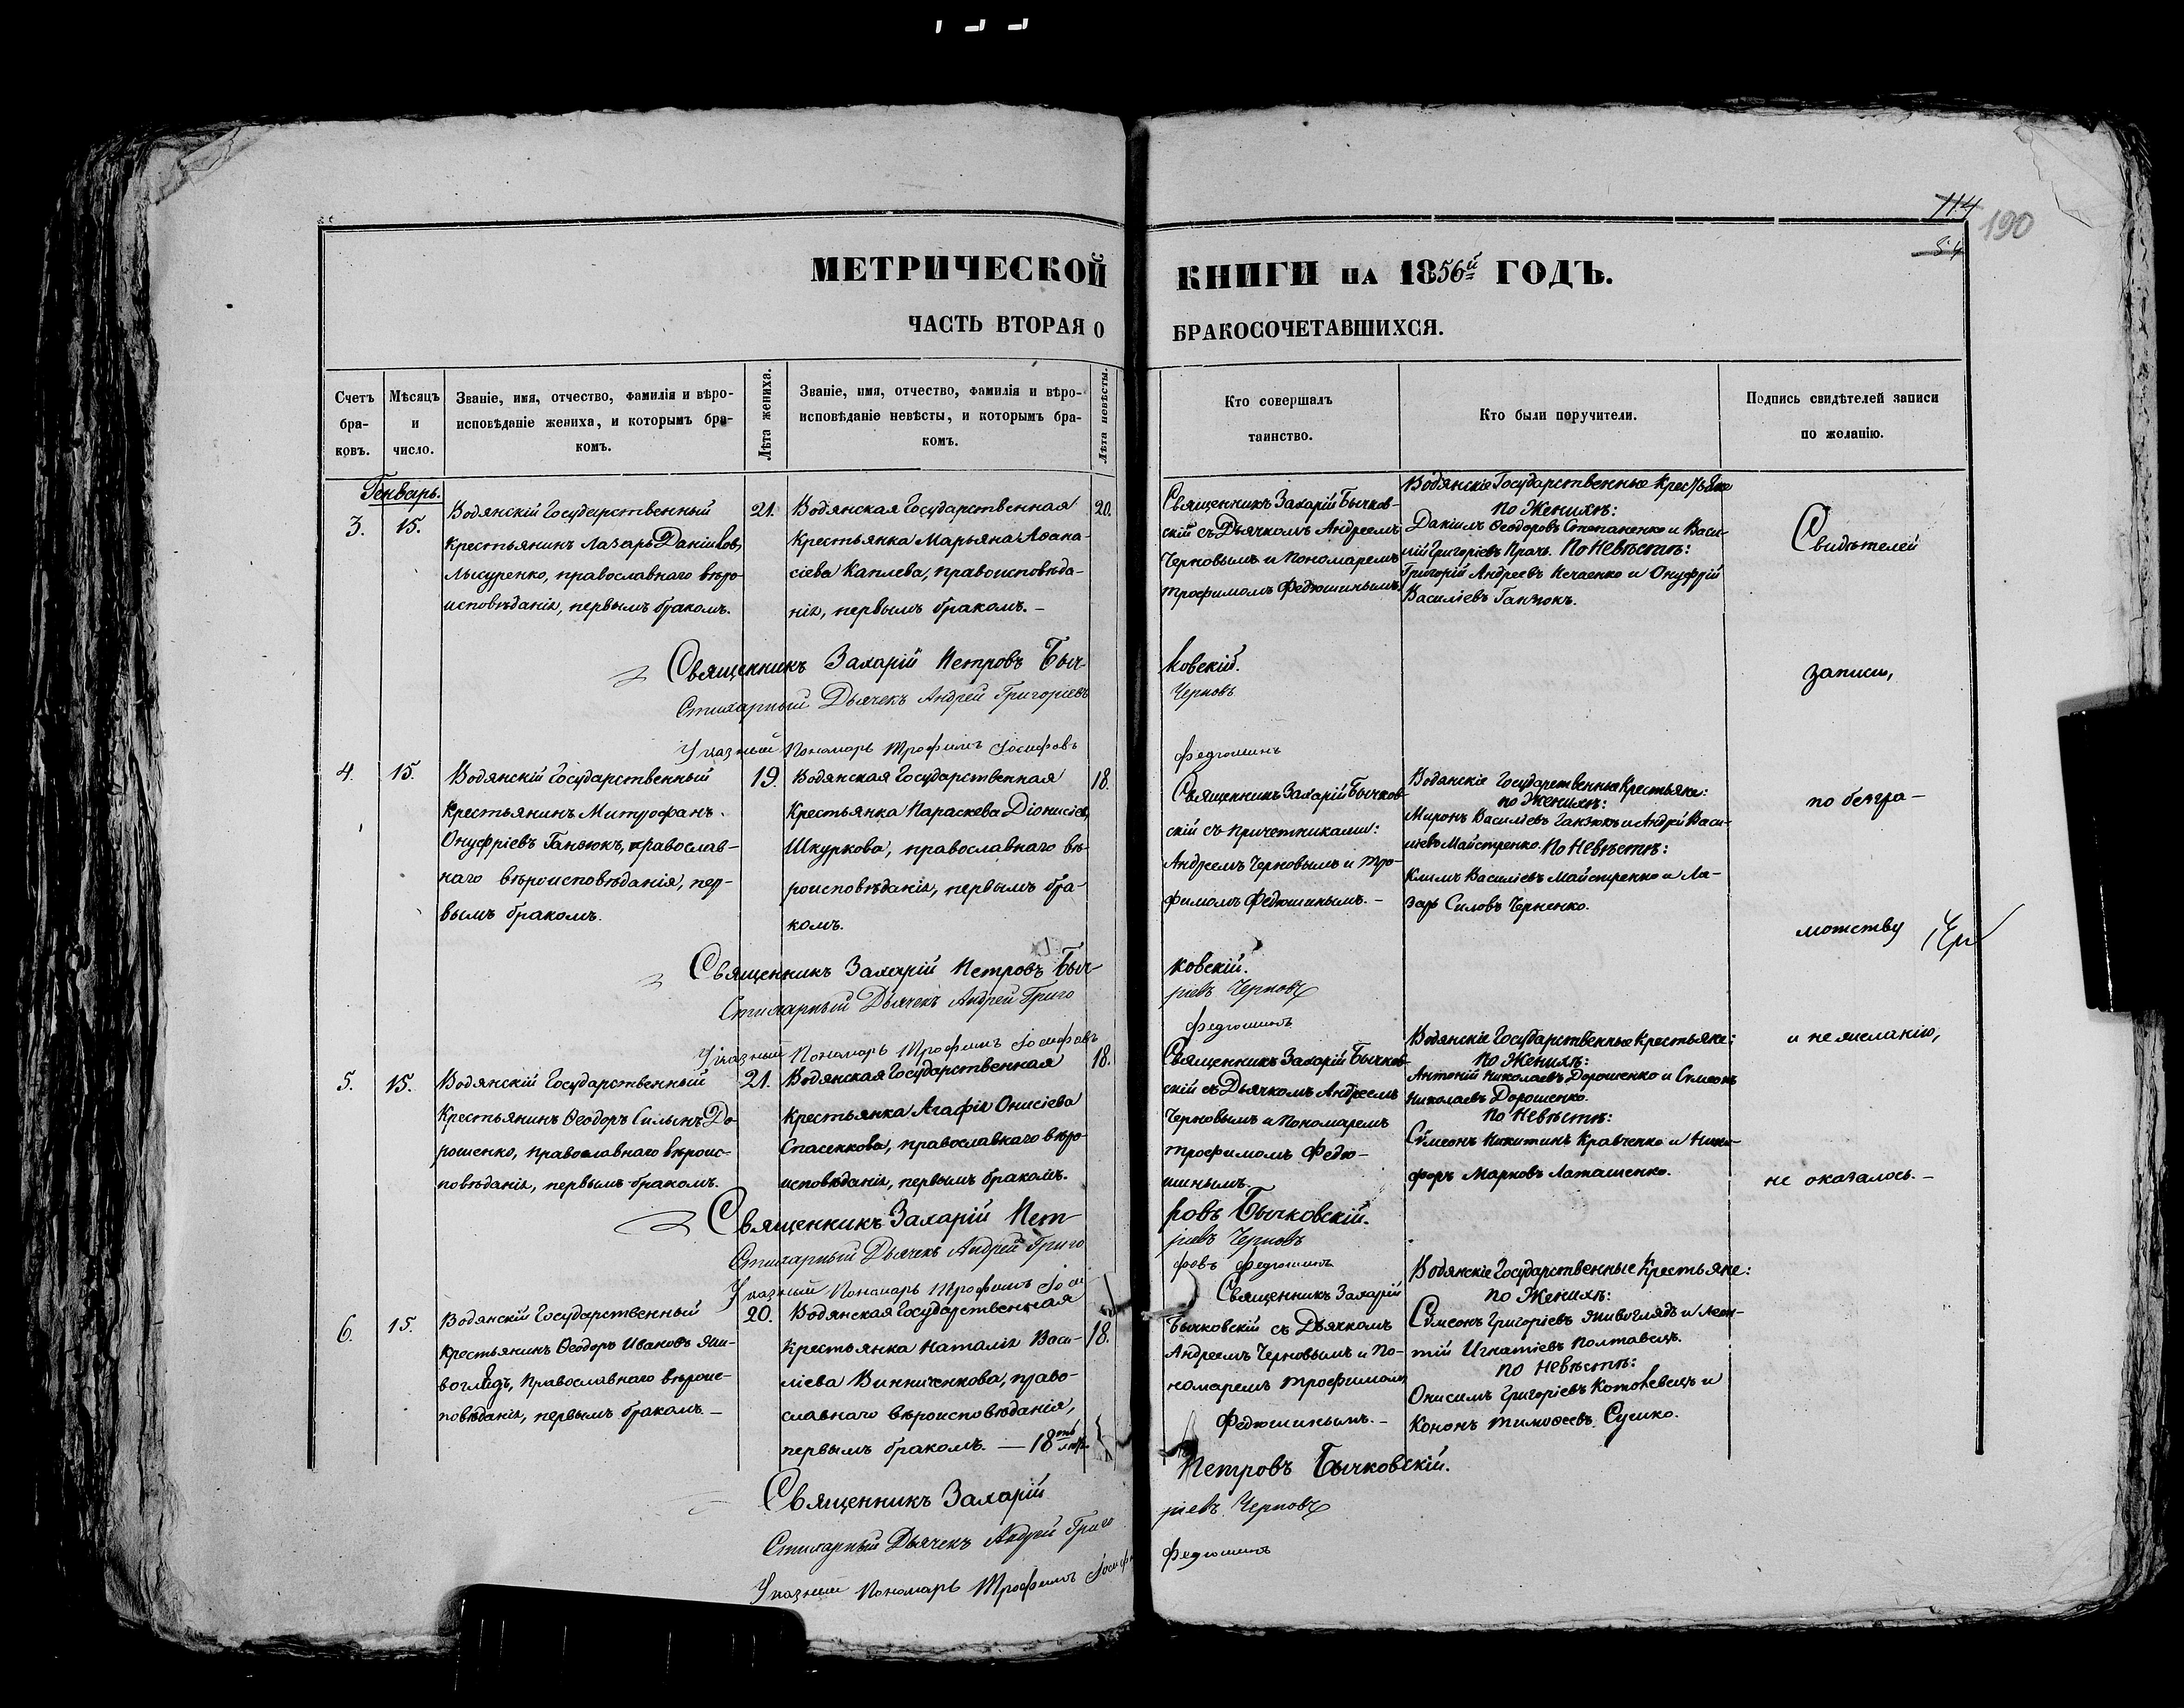 114
190
МЕТРИЧЕСКОЙ КНИГИ НА 1856й ГОДЪ.
ЧАСТЬ ВТОРАЯ О БРАКОСОЧЕТАВШИХСЯ.
Счетъ бра-
ковъ.
Мѣсяцъ
и
число.
Званіе, имя, отчество, фамилія и вѣро-
исповѣданіе жениха, и которымъ бра-
комъ.
Лѣта жениха.
Званіе, имя, отчество, фамилія и вѣро-
исповѣданіе невѣсты, и которымъ бра-
комъ.
Лѣта невѣсты.
Кто совершалъ
таинство.
Кто были поручители.
Подпись свидѣтелей записи
по желанію.
Генварь.
3.
15.
Водянскій Государственный
Крестьянинъ Лазарь Даніиловъ
Лысуренко, православнаго вѣро-
исповѣданія, первымъ бракомъ.
21.
Водянская Государственная
Крестьянка Марьяна Аѳана-
сіева Каплева, правоисповѣда-
нія, первымъ бракомъ. –
20.
Священникъ Захарій Бычков-
скій съ Дьячкомъ Андреемъ
Черновымъ и Пономаремъ
Трофимомъ Федюшинымъ.
Водянскіе Государственные Крестьяне
по Женихѣ:
Даніилъ Ѳеодоровъ Степаненко и Васи-
лій Григоріевъ Прачъ. По Невѣстѣ:
Григорій Андреевъ Нечаенко и Онуфрій
Василіевъ Ганзюкъ.
Свидѣтелей
Священникъ Захарій Петровъ Быч-
ковскій.
Стихарный Дьячекъ Андрей Григоріевъ
Черновъ
Указный Пономарь Трофимъ Іосифовъ
Федюшинъ
записи,
4.
15.
Водянскій Государственный
Крестьянинъ Митрофанъ
Онуфріевъ Ганзюкъ, православ-
наго вѣроисповѣданія, пер-
вымъ бракомъ.
19.
Водянская Государственная
Крестьянка Параскева Діонисіева
Шкуркова, православнаго вѣ-
роисповѣданія, первымъ бра-
комъ.
18.
Священникъ Захарій Бычков-
скій съ причетниками:
Андреемъ Черновымъ и Тро-
фимомъ Федюшинымъ. –
Водянскіе Государственные Крестьяне:
по Женихѣ:
Миронъ Василіевъ Ганзюкъ и Андрей Васи-
ліевъ Майстренко. По Невѣстѣ:
Климъ Василіевъ Майстренко и Ла-
зарь Силовъ Черненко.
по безгра-
мотству
Священникъ Захарій Петровъ Быч-
ковскій.
Стихарный Дьячекъ Андрей Григо
ріевъ Черновъ
Указный Пономарь Трофимъ Іосифовъ
Федюшинъ
и нежеланію,
5.
15.
Водянскій Государственный
Крестьянинъ Ѳеодоръ Силынъ До-
рошенко, православнаго вѣроис-
повѣданія, первымъ бракомъ.
21.
Водянская Государственная
Крестьянка Агафія Онисіева
Спасенкова, православнаго вѣро-
исповѣданія, первымъ бракомъ.
18.
Священникъ Захарій Бычков-
скій съ Дьячкомъ Андреемъ
Черновымъ и Пономаремъ
Трофимомъ Федю-
шинымъ.
Водянскіе Государственные Крестьяне:
По Женихѣ:
Антоній Николаевъ Дорошенко и Сѵмеонъ
Николаевъ Дорошенко.
По Невѣстѣ:
Сѵмеонъ Никитинъ Кравченко и Ники-
форъ Марковъ Латашенко.
не оказалось. –
Священникъ Захарій Пет-
ровъ Бычковскій.
Стихарный Дьячекъ Андрей Григо
ріевъ Черновъ
Указный Пономарь Трофимъ Іоси
фовъ Федюшинъ
6.
15.
Водянскій Государственный
Крестьянинъ Ѳеодоръ Ивановъ Жи-
воглядъ, Православнаго вѣроис-
повѣданія, первымъ бракомъ. –
20.
Водянская Государственная
Крестьянка Наталія Васи-
ліева Винниченкова, право-
славнаго вѣроисповѣданія,
первымъ бракомъ. – 18ть лѣтъ
18.
Священникъ Захарій
Бычковскій съ Дьячкомъ
Андреемъ Черновымъ и По-
номаремъ Трофимомъ
Федюшинымъ. –
Водянскіе Государственные Крестьяне:
по Женихѣ:
Сѵмеонъ Григоріевъ Живоглядъ и Леон-
тій Игнатіевъ Полтавецъ.
По Невѣстѣ:
Онисимъ Григоріевъ Котовецъ и
Кононъ Тимоѳеевъ Сушко.
Священникъ Захарій
Петровъ Бычковскій.
Стихарный Дьячекъ Андрей Григо
ріевъ Черновъ
Указный Пономарь Трофимъ Іосифо
Федюшинъ